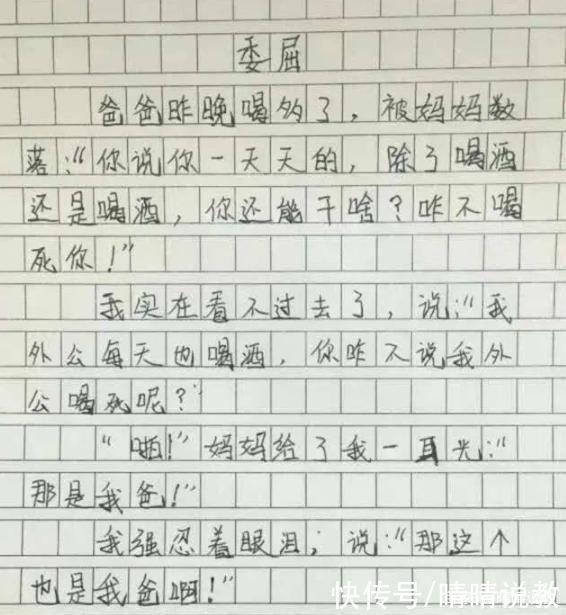 委屈
爸爸昨晚喝多了，被妈妈数
落：“你说你一天天的，除了喝酒
还是喝酒，你还能干啥？咋不喝
死你！”
我实在看不过去了，说：“我
外公每天也喝酒，你咋不说我外
公喝死呢？”
“啪！”妈妈给了我一耳光：“
那是我爸！”
我强忍着眼泪；说：“那这个
也是我爸啊！”
快传号/晴晴说教